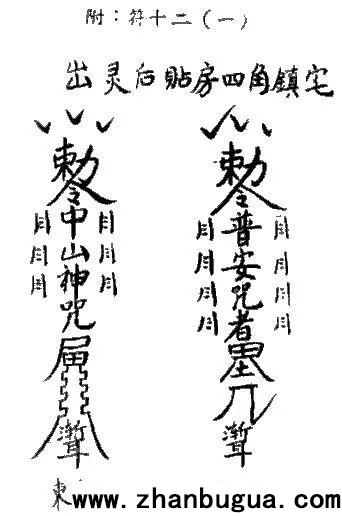 附:符十二(一)
出灵后贴房四角镇宅
敕令中山神咒
月 月 月
月 月 月
敕令普安咒者
月 月 月 月
月 月 月 月
東
www.zhanbugua.com